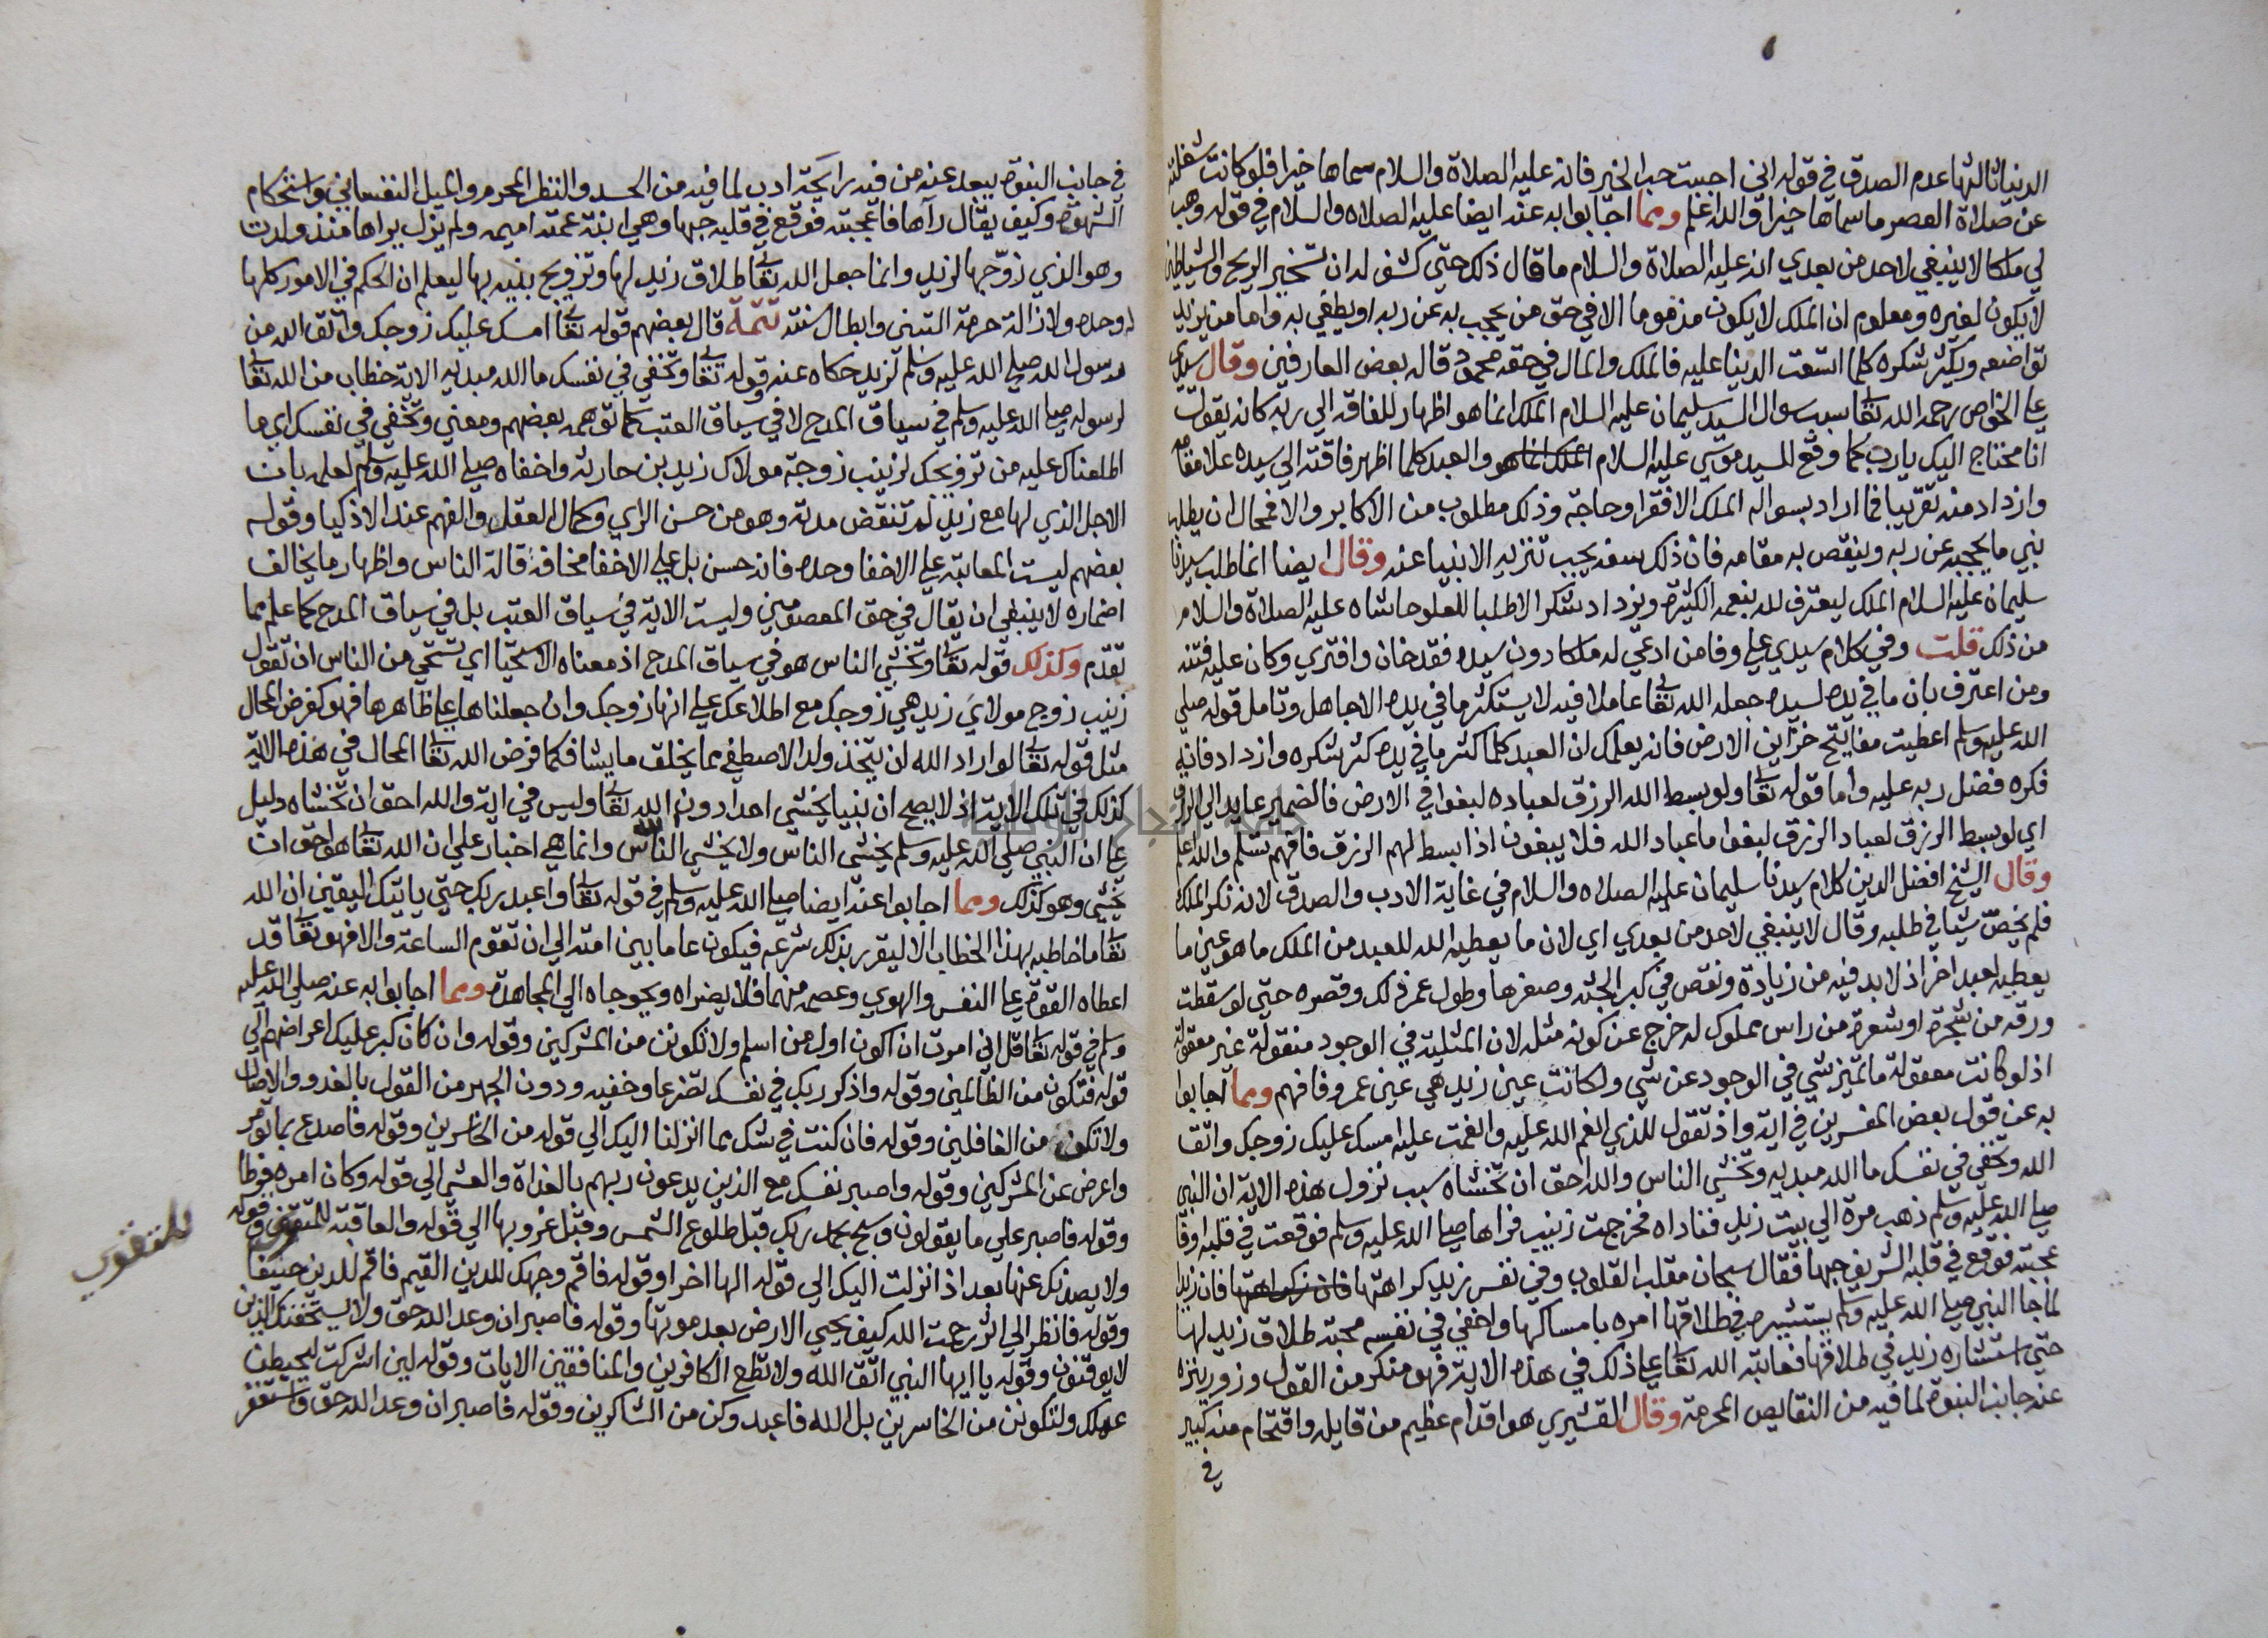 الدنيا ثالثها عدم الصدق في قوله اني احببت حب الخير فانه عليه الصلاة والسلام سماها خيرا فلو كانت شغلته
عن صلاة العصر ما سماها خيرا والله اعلم ومما اجابوا به عنه ايضا عليه الصلاه والسلام في قوله وهب
لي ملكا لا ينبغي لاحد من بعدي انه عليه الصلاة والسلام ما قال ذلك حتي كشف له ان تسخير الريح والشياطين
لا يكون لغيره ومعلوم ان الملك لا يكون مذموما الا في حق من يحجب به عن ربه او يطغي به واما من يزيد
تواضعه ويكثر شكره كلما اتسعت الدنيا عليه فالملك والمال في حقه محمود قاله بعض العارفين وقال سيدي
علي الخواص رحمه الله تعالي سبب سوال السيد سليمان عليه السلام الملك انما هو اظهار للفاقه الي ربه كانه يقول
انا محتاج اليك يارب كما وقع للسيد موسي عليه السلام الملك انما هو والعبد كلما اظهر فاقته الي سيده علا مقامه
وازداد منه تقريبا فما اراد بسواله الملك الا فقرا وحاجة وذلك مطلوب من الاكابر والا فمحال ان يطلب
نبي ما يحجبه عن ربه وينقص به مقامه فان ذلك سفه يجب تنزيه الانبيا عنه وقال ايضا انما طلب سيدنا
سليمان عليه السلام الملك ليعترف لله بنعمه الكثيرة ويزداد شكرا لا طلبا للعلو حاشاه عليه الصلاة والسلام
من ذلك قلت وفي كلام سيدي علي وفا من ادعي له ملكا دون سيده فقد خان وافتري وكان عليه فتنه
ومن اعترف بان ما في يده لسيده جعله الله تعالي عاملا فيه لا يستكثر ما في يده الا جاهل وتامل قوله صلي
الله عليه وسلم اعطيت مفاتيح خزاين الارض فانه يعلمك ان العبد كلما كثر ما في يده كثر شكره وازداد فانيه
فكره فضل ربه عليه واما قوله تعالي ولو بسط الله الرزق لعباده لبغوا في الارض فالضمير عايد الي الرزق
اي لو بسط الرزق لعباد الرزق لبغوا اما عباد الله فلا يبغون اذا بسط لهم الرزق فافهم تسلم والله اعلم
وقال الشيخ افضل الدين كلام سيدنا سليمان عليه الصلاه والسلام في غاية الادب والصدق لانه نكر الملك
فلم يخص شيا في طلبه وقال لا ينبغي لاحد من بعدي اي لان ما يعطيه الله للعبد من الملك ما هو عين ما
يعطيه لعبد اخر اذ لا بد فيه من زيادة ونقص في كبر الجثه وصغرها وطول عمر ذلك وقصره حتي لو سقطت
ورقه من شجرة او شعرة من راس مملوك له خرج عن كونه مثله لان المثلية في الوجود منقولة غير معقوله
اذ لو كانت معقولة ما تميز شي في الوجود عن شي ولكانت عين زيد هي عين عمرو فافهم ومما اجابوا
به عن قول بعض المفسرين في اية واذ تقول للذي انعم الله عليه وانعمت عليه امسك عليك زوجك واتق
الله وتخفي في نفسك ما الله مبديه وتخشي الناس والله احق ان تخشاه سبب نزول هذه الاية ان النبي
صلي الله عليه وسلم ذهب مرة الي بيت زيد فناداه فخرجت زينب فراها صلي الله عليه وسلم فوقعت في قلبه
عجبته فوقع في قلبه الشريف حبها فقال سبحان مقلب القلوب وفي نفس زيد كراهتها فان زيدا
لما جا النبي صلي الله عليه وسلم يستشيره في طلاقها امره بامساكها واخفي في نفسه محبة طلاق زيد لها
حتي استشاره زيد في طلاقها فعاتبه الله تعالي علي ذلك في هذه الاية فهو منكر من القول وزور ينزه
عنه جانب النبوة لما فيه من النقايص المحرمة وقال القشيري هو اقدام عظيم من قايله واقتحام منه كبير
في
في جانب النبوة يبعد عنه من فيه رايحة ادب لما فيه من الحسد والنظر المحرم والميل النفساني واستحكام
الشهوة وكيف يقال رآها فاعجبته فوقع في قلبه حبها وهي ابنة عمته اميمه ولم يزل يراها منذ ولدت
وهو الذي زوّجها لزيد وانما جعل الله تعالي طلاق زيد لها وتزويج نبيه بها ليعلم ان الحكم في الامور كلها
له وحده ولازالة حرمة التبني وابطال سنته تتمة قال بعضهم قوله تعالي امسك عليك زوجك واتق الله من
رسول الله صلي الله عليه وسلم لزيد حكاه عنه قوله تعالي وتخفي في نفسك ما الله مبديه الاية خطاب من الله تعالي
لرسوله صلي الله عليه وسلم في سياق المدح لا في سياق العتب كما توهمه بعضهم ومعني وتخفي في نفسك اي ما
اطلعناك عليه من تزويجك لزينب زوجة مولاك زيد بن حارثة واخفاه صلي الله عليه وسلم لعلمه بان
الاجل الذي لها مع زيد لم تنقض مدته وهو من حسن الراي وكمال العقل والفهم عند الاذكيا وقول
بعضهم ليست المعاتبة علي الاخفا وحده فانه حسن بل علي الاخفا مخافة قالة الناس واظهار ما يخالف
اضماره لا ينبغي ان يقال في حق المعصومين وليست الاية في سياق العتب بل في سياق المدح كما علم مما
تقدم وكذلك قوله تعالي وتخشي الناس هو في سياق المدح اذ معناه الاستحيا اي تستحي من الناس ان تقول
زينب زوج مولاي زيد هي زوجك مع اطلاعك علي انها زوجك وان جعلناها علي ظاهرها فهو كفرض المحال
مثل قوله تعالي لو اراد الله ان يتخذ ولدا لاصطفي مما يخلق ما يشا فكما فرض الله تعالي المحال في هذه الاية
كذلك في تلك الاية اذ لا يصح ان نبيا يخشي احدا دون الله تعالي وليس في اية والله احق ان تخشاه دليل
علي ان النبي صلي الله عليه وسلم يخشي الناس ولا يخشي الله وانما هي اخبار علي ان الله تعالي هو احق ان
يخشي وهو كذلك ومما اجابوا عنه ايضا صلي الله عليه وسلم في قوله تعالي واعبد ربك حتي ياتيك اليقين ان الله
تعالي ما خاطبه بهذا الخطاب الا ليقرر بذلك شرعه فيكون عاما بين امته الي ان تقوم الساعة والا فهو تعالي قد
اعطاه القوة علي النفس والهوي وعصمه منهما فلا يضراه ويحوجاه الي المجاهدة ومما اجابوا به عنه صلي الله عليه
وسلم في قوله تعالي قل اني امرت ان اكون اول من اسلم ولا تكونن من المشركين وقوله وان كان كبر عليك اعراضهم الي
قوله فتكون من الظالمين وقوله واذكر ربك في نفسك تضرعا وخفيه ودون الجهر من القول بالغدو والاصال
ولا تكون من الغافلين وقوله فان كنت في شك مما انزلنا اليك الي قوله من الخاسرين وقوله فاصدع بما تومر
واعرض عن المشركين وقوله واصبر نفسك مع الذين يدعون ربهم بالغداة والعشي الي قوله وكان امره فرطا
وقوله فاصبر علي ما يقولون وسبح بحمد ربك قبل طلوع الشمس وقبل غروبها الي قوله والعاقبة للتقوي وقوله
للتقوي
ولا يصدنك عنها بعد اذ انزلت اليك الي قوله الها اخر وقوله فاقم وجهك للدين القيم فاقم للدين حنيفا
وقوله فانظر الي اثر رحمت الله كيف يحيي الارض بعد موتها وقوله فاصبر ان وعد الله حق ولا يستخفنك الذين
لا يوقنون وقوله يا ايها النبي اتق الله ولا تطع الكافرين والمنافقين الايات وقوله لين اشركت ليحبطن
عملك ولتكونن من الخاسرين بل الله فاعبد وكن من الشاكرين وقوله فاصبر ان وعد الله حق واستغفر